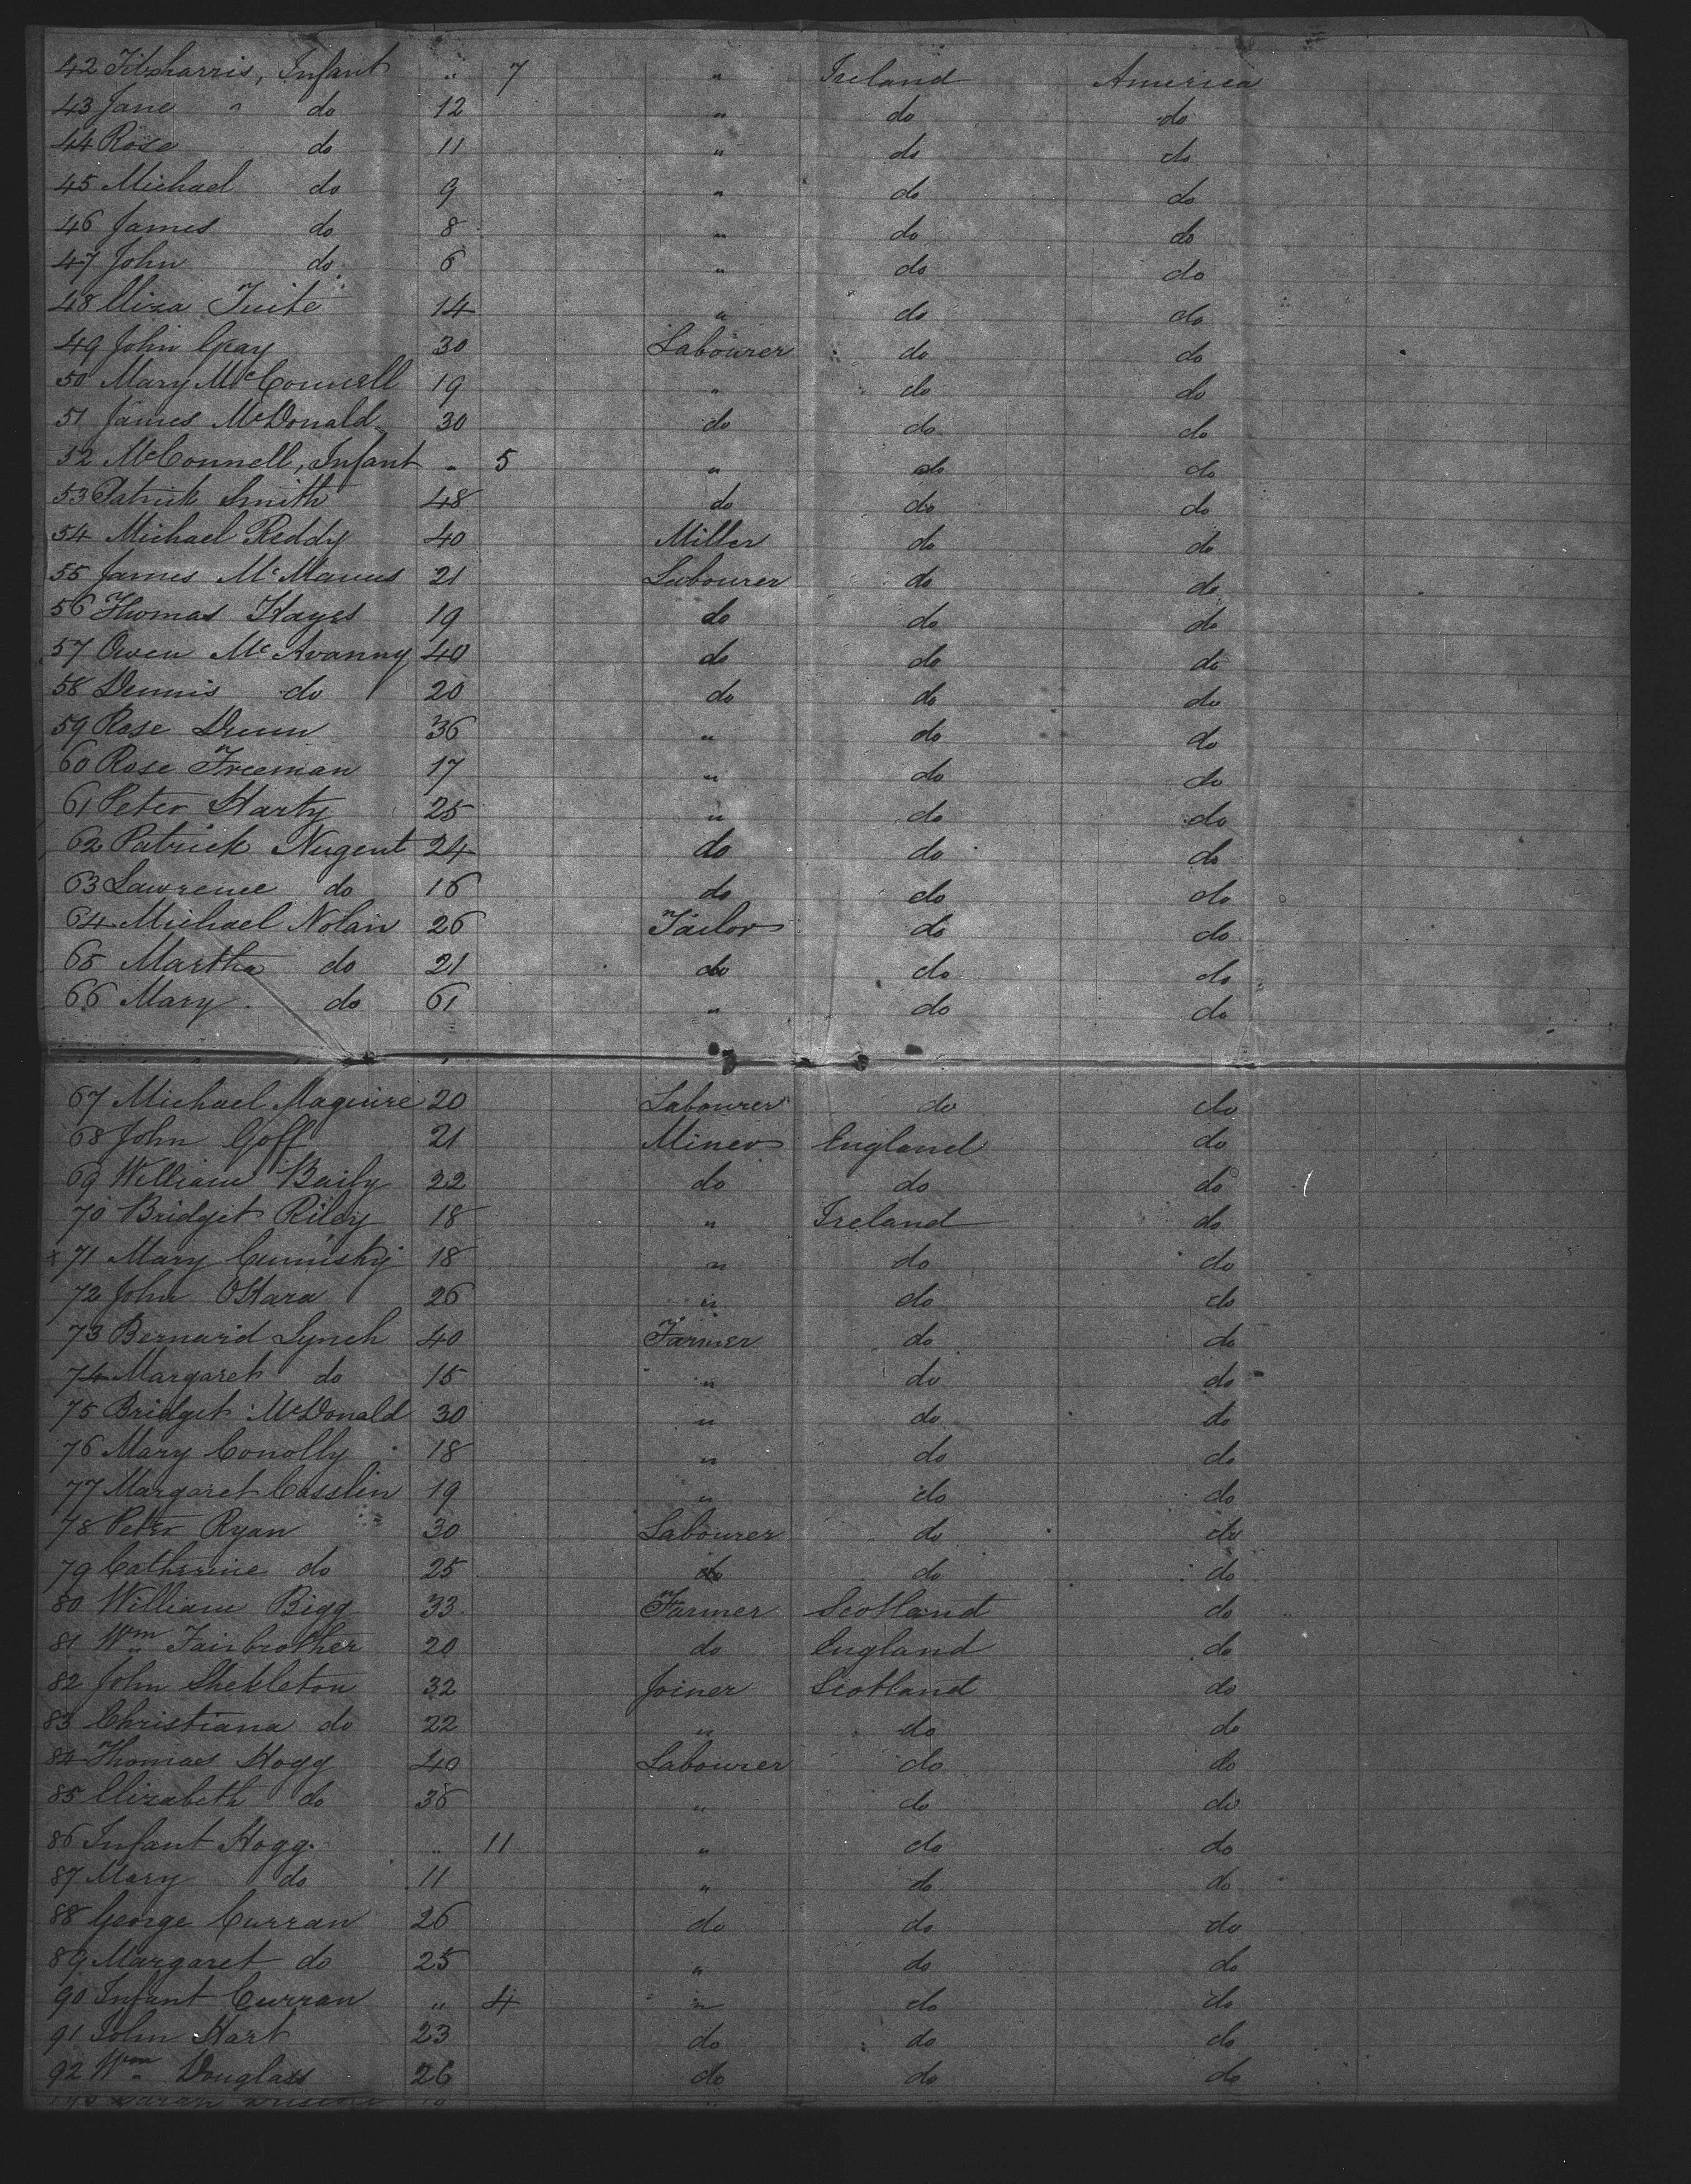 42 Fitzharris, Infant " 7 " Ireland America
43 Jane " do 12 " do do
44 Rose do 11 " do do
45 Michael do 9 " do do
46 James do 8 " do do
47 John do 6 " do do
48 Eliza Tuite 14 " do do
49 John Gray 30 Labourer do do
50 Mary McConnell 19 " do do
51 James McDonald 30 do do do
52 McConnell, Infant " 5 " do do
53 Patrick Smith 48 do do do
54 Michael Reddy 40 Miller do do
55 James McManus 21 Labourer do do
56 Thomas Hayes 19 do do do
57 Owen McAvanny 40 do do do
58 Dennis do 20 do do do
59 Rose Drum 36 " do do
60 Rose Freeman 17 " do do
61 Peter Harty 25 " do do
62 Patrick Nugent 24 do do do
63 Lawrence do 16 do do do
64 Michael Nolan 26 Tailor do do
65 Martha do 21 do do do
66 Mary do 61 " do do
67 Michael Maguire 20 Labourer do do
68 John Goff 21 Miner England do
69 William Baily 22 do do do
70 Bridget Riley 18 " Ireland do
x 71 Mary Cumisky 18 " do do
72 John OHara 26 " do do
73 Bernard Lynch 40 Farmer do do
74 Margaret do 15 " do do
75 Bridget McDonald 30 " do do
76 Mary Conolly 18 " do do
77 Margaret Casslin 19 " do do
78 Peter Ryan 30 Labourer do do
79 Catherine do 25 do do do
80 William Bigg 33 Farmer Scotland do
81 Wm Fairbrother 20 do England do
82 John Shekleton 32 Joiner Scotland do
83 Christiana do 22 " do do
84 Thomas Hogg 40 Labourer do do
85 Elizabeth do 36 " do do
86 Infant Hogg " 11 " do do
87 Mary do 11 " do do
88 George Curran 26 do do do
89 Margaret do 25 " do do
90 Infant Curran " 4 " do do
91 John Hart 23 do do do
92 Wm Douglass 26 do do do